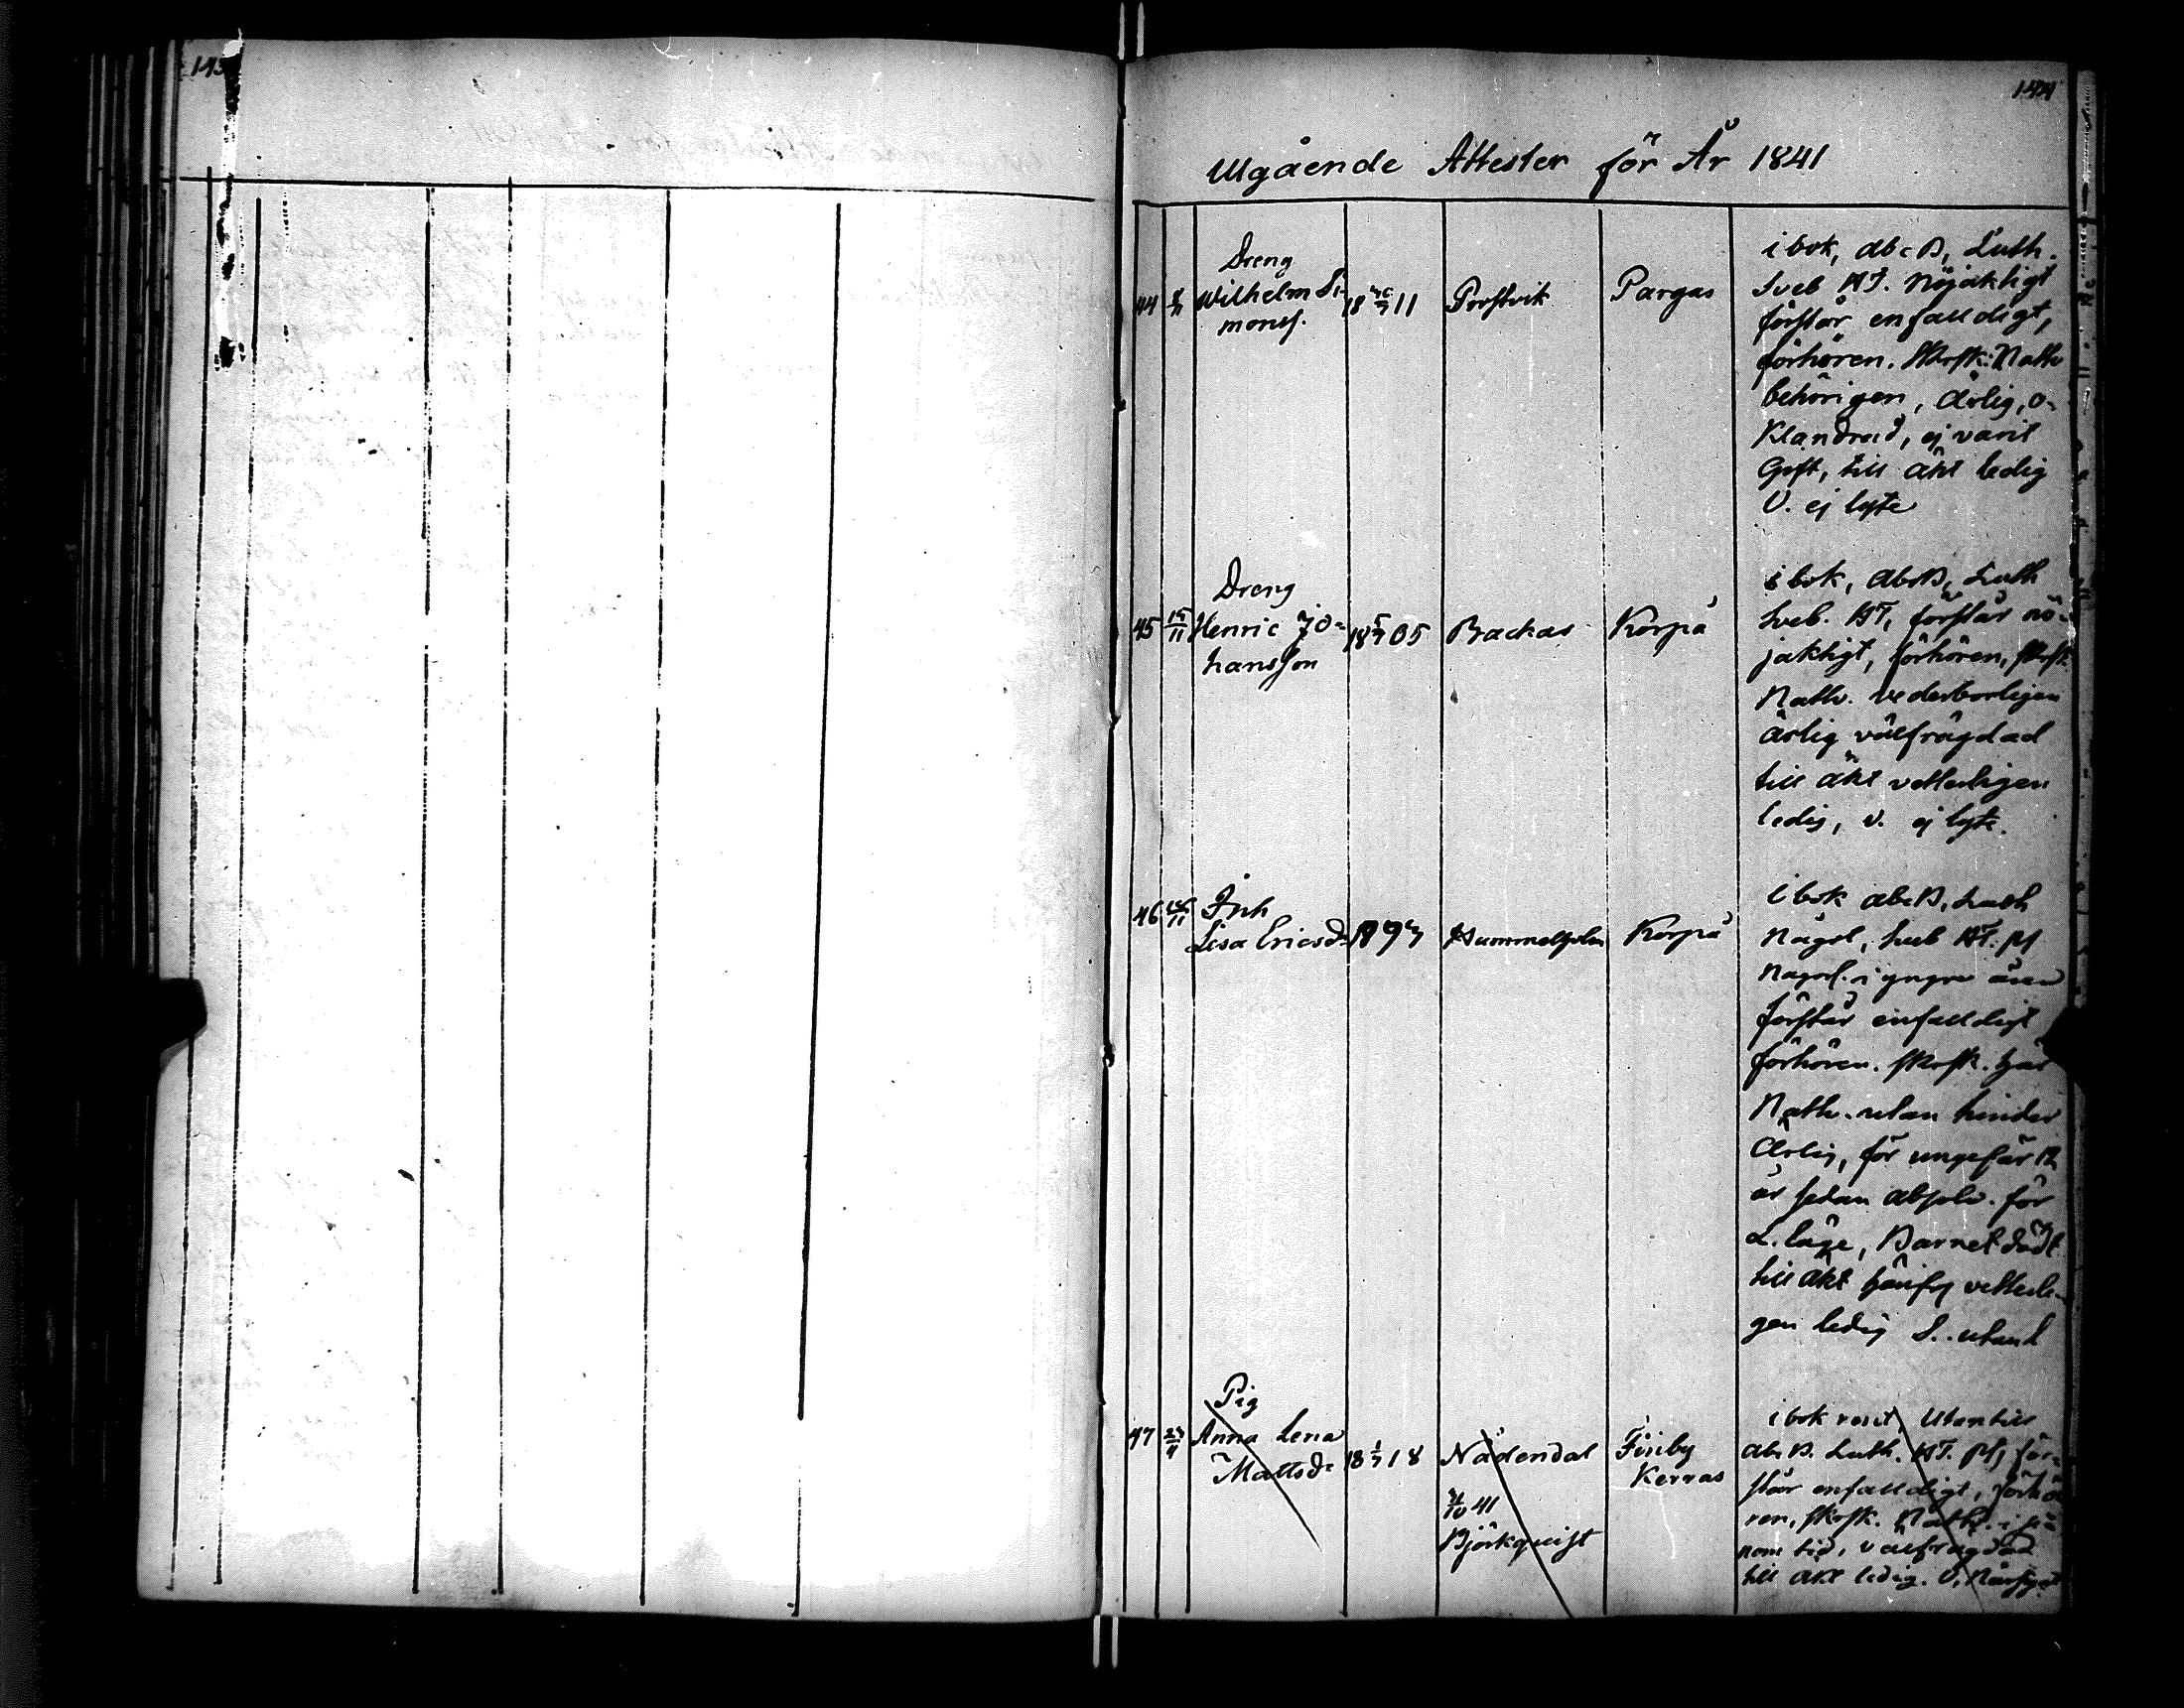 143
144
Utgående Attester för År 1841
44
Dreng
Wilhelm Si-
monss.
18 11
Prostvik
Pargas
i bok, abcB, Luth.
Sveb HT. Nöjaktigt
förstår enfalldigt,
förhören. Skrift. Nattv
behörigen, ärlig, o-
klandrad, ej varit
Gift, till äkt ledig
V. ej lyte
45 15/11
Dreng
Henric Jo-
hansson
18 5/7 05
Backas
Korpå
i bok, abcB, Luth
Sveb. HT, förstår nö-
jaktigt, förhören, skrift.
Nattv. vederborligen
ärlig välfrägdad
till äkt vetterligen
ledig, v. ej lyte.
46
Inh
Lisa Ericsd:
1797
Hummelholm
Korpå
i bok abcB, Luth
Någol, Sveb HT. pf
Nagol. i yngre åren
förstår enfalldigt
förhören. skrift. här
Nattv. utan hinder
Ärlig, för ungefär 12
år sedan absolv. för
L. läge, Barnet dödt
till äkt härifr vetterli-
gen ledig
47 23/11
Pig
Anna Lena
Mattsd:
18 1/7 18
Nådendal
41
Björkqvist
Finby
Kerras
i bok vant, Utantill
abcB. Luth. HT. pf, för-
står enfalldigt, förhö
ren, skrift. Nattv. i
nom tid, välfrägdad
till äkt ledig. V.